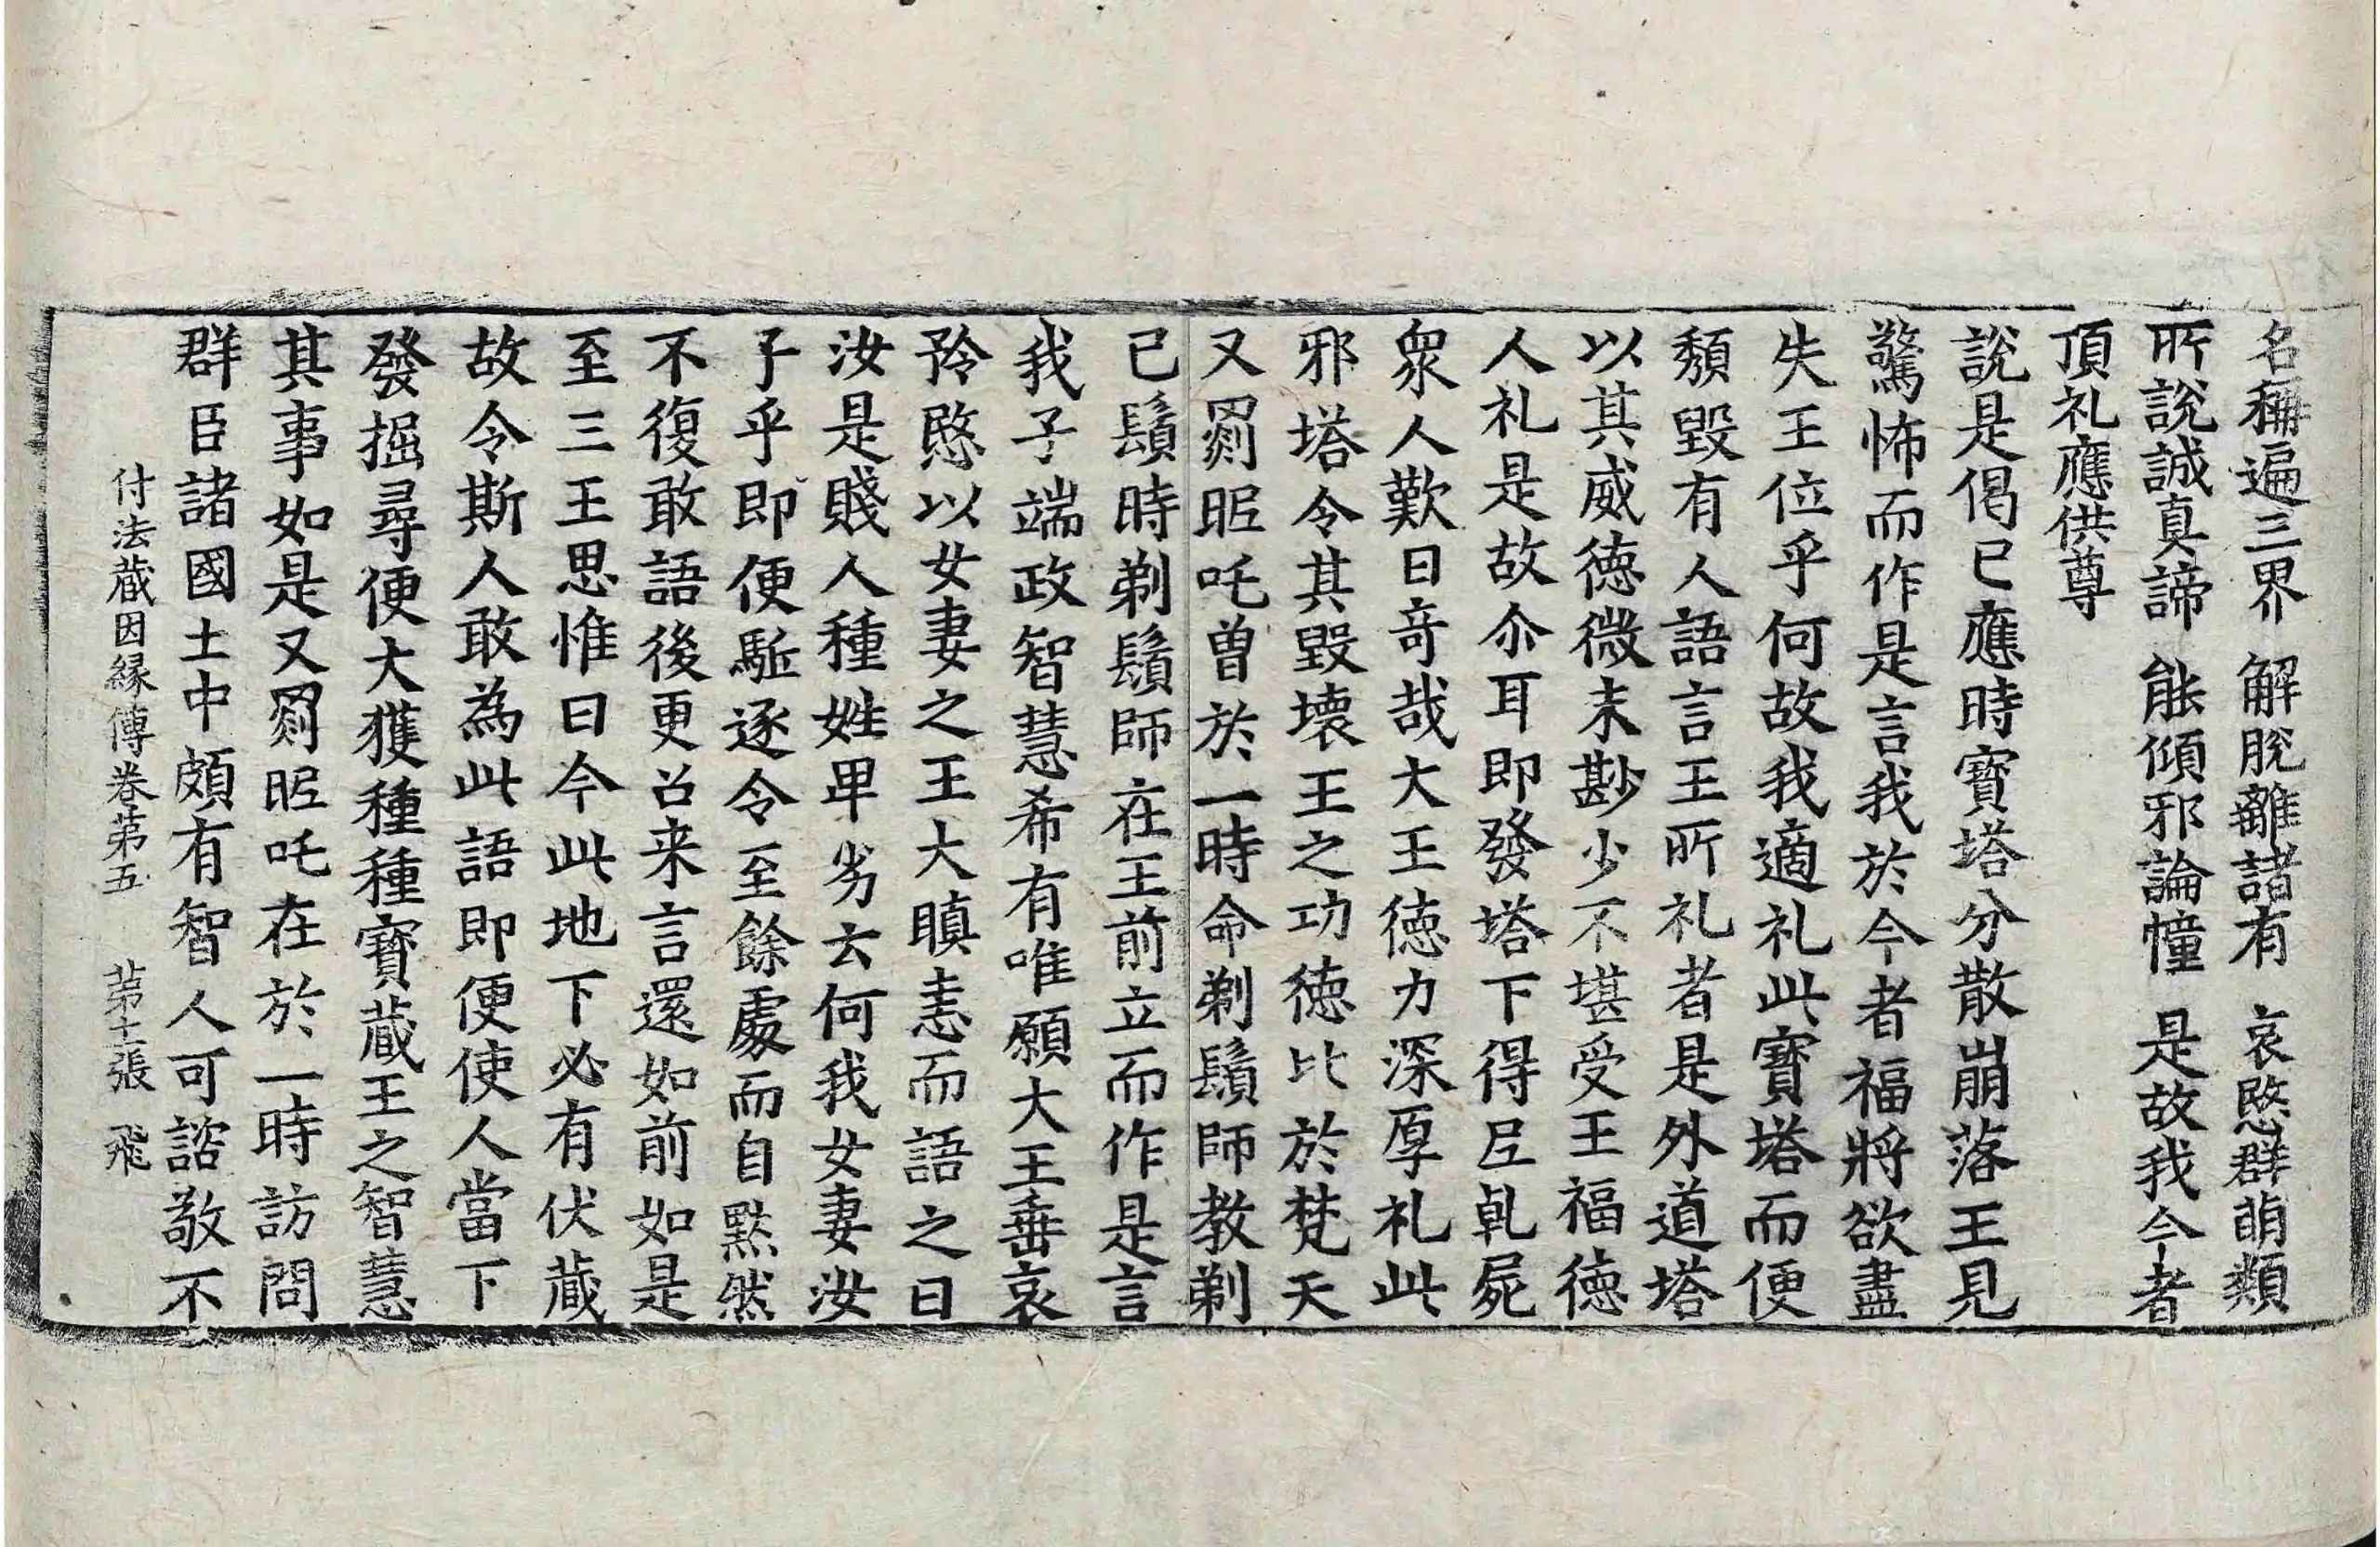 名稱遍三界　解脫離諸有　哀愍群萌類
所說誠真諦　能傾邪論憧　是故我今者
頂礼應供尊
說是偈已應時寶塔分散崩落王見
驚怖而作是言我於今者福將欲盡
失王位乎何故我適礼此寶塔而便
頹毀有人語言王所礼者是外道塔
以其威徳微末尠少不堪受王福徳
人礼是故尒耳即發塔下得𡰱乹屍
衆人歎日竒哉大王徳力深厚礼此
邪塔令其毀壊王之功徳比於梵天
又罽昵吒曽於一時命剃鬚師教剃
已鬚時剃鬚師在王前立而作是言
我子端政智慧希有唯願大王垂哀
矜愍以女妻之王大瞋恚而語之日
汝是賤人種姓卑劣云何我女妻汝
子乎即便駈逐令至餘處而自黙然
不復敢語後更召来言還如前如是
至三王思惟曰今此地下必有伏蔵
故令斯人敢為此語即便使人當下
發掘尋便大獲種種寶蔵王之智慧
其事如是又罽昵吒在於一時訪問
群臣諸國土中頗有智人可諮敬不
付法蔵因縁傳卷苐五　苐十二張　飛